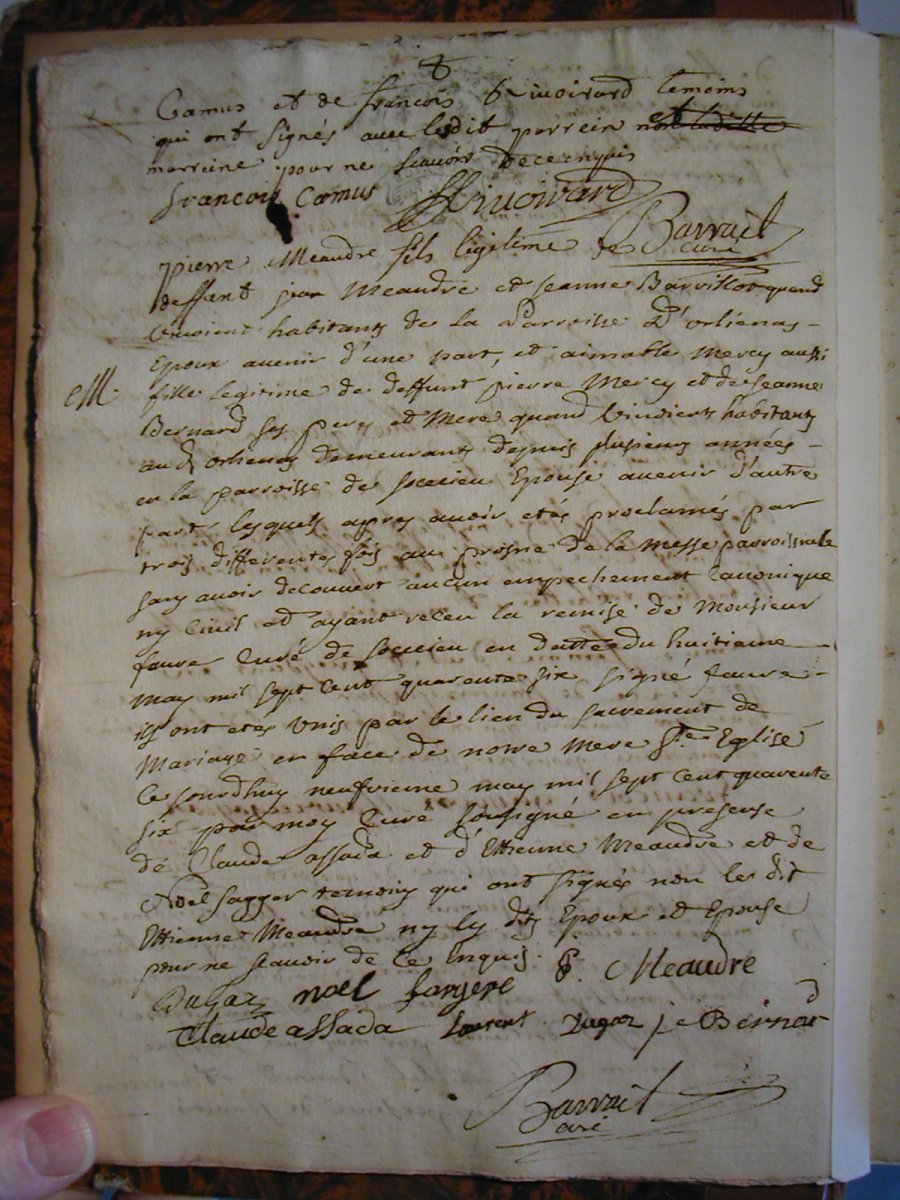 8
Camus et de francois Grivoirard temoins
qui ont signés avec ledit parrein et
marreine pour ne scavoir de ce enquis
francois Camus Grivoirard
Barrail
curé
pierre Meandre fils legitime de
deffunt jean Meandre et jeanne Barrillot quand
vivoient habitants de la Parroisse D'orlienas
Epoux avenir d'une part, et aimable Mercy aussi
M. fille legitime de deffunt pierre Mercy et de jeanne
Bernard ses pere et Mere quand Vivoients habitants
aud orlienas demeurants depuis plusieurs années
en la parroisse de soucieu Epouse avenir d'autre
part, lesquels apres avoir etes proclamés par
trois differentes fois au prosne de la Messe parroissiale
sans avoir decouvert aucun empechement Canonique
ny Civil et ayant receu la remise de Monsieur
faure Curé de soucieu en datte du huitieme
may mil sept Cent quarente six signé faure
ils ont etés Unis par le lien du sacrement de
Mariage en face de notre Mere Ste Eglise
Ce jourdhuy neufvieme may mil sept Cent quarente
six par moy Curé soussigné en presense
de Claude assada et d'Ettienne Meandre et de
Noel targer temoins qui ont signés non les dit
Ettienne Meandre ny ly dts Epoux et Epouse
pour ne scavoir de Ce Enquis.
Dugaz noel fargere P. Meaudre
Claude assada Laurent Dugaz j c Bernard
Barrail
curé